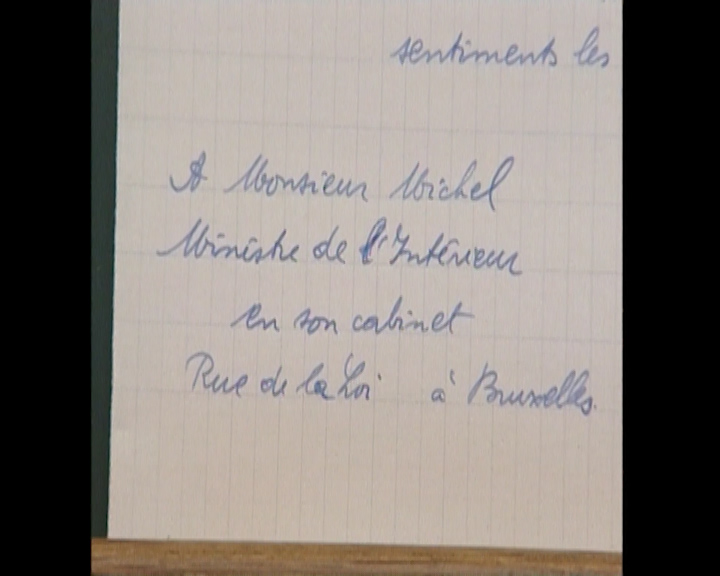 sentiments les
A Monsieur Michel
Ministre de l'Intérieur
en son cabinet
Rue de la Loi à Bruxelles.